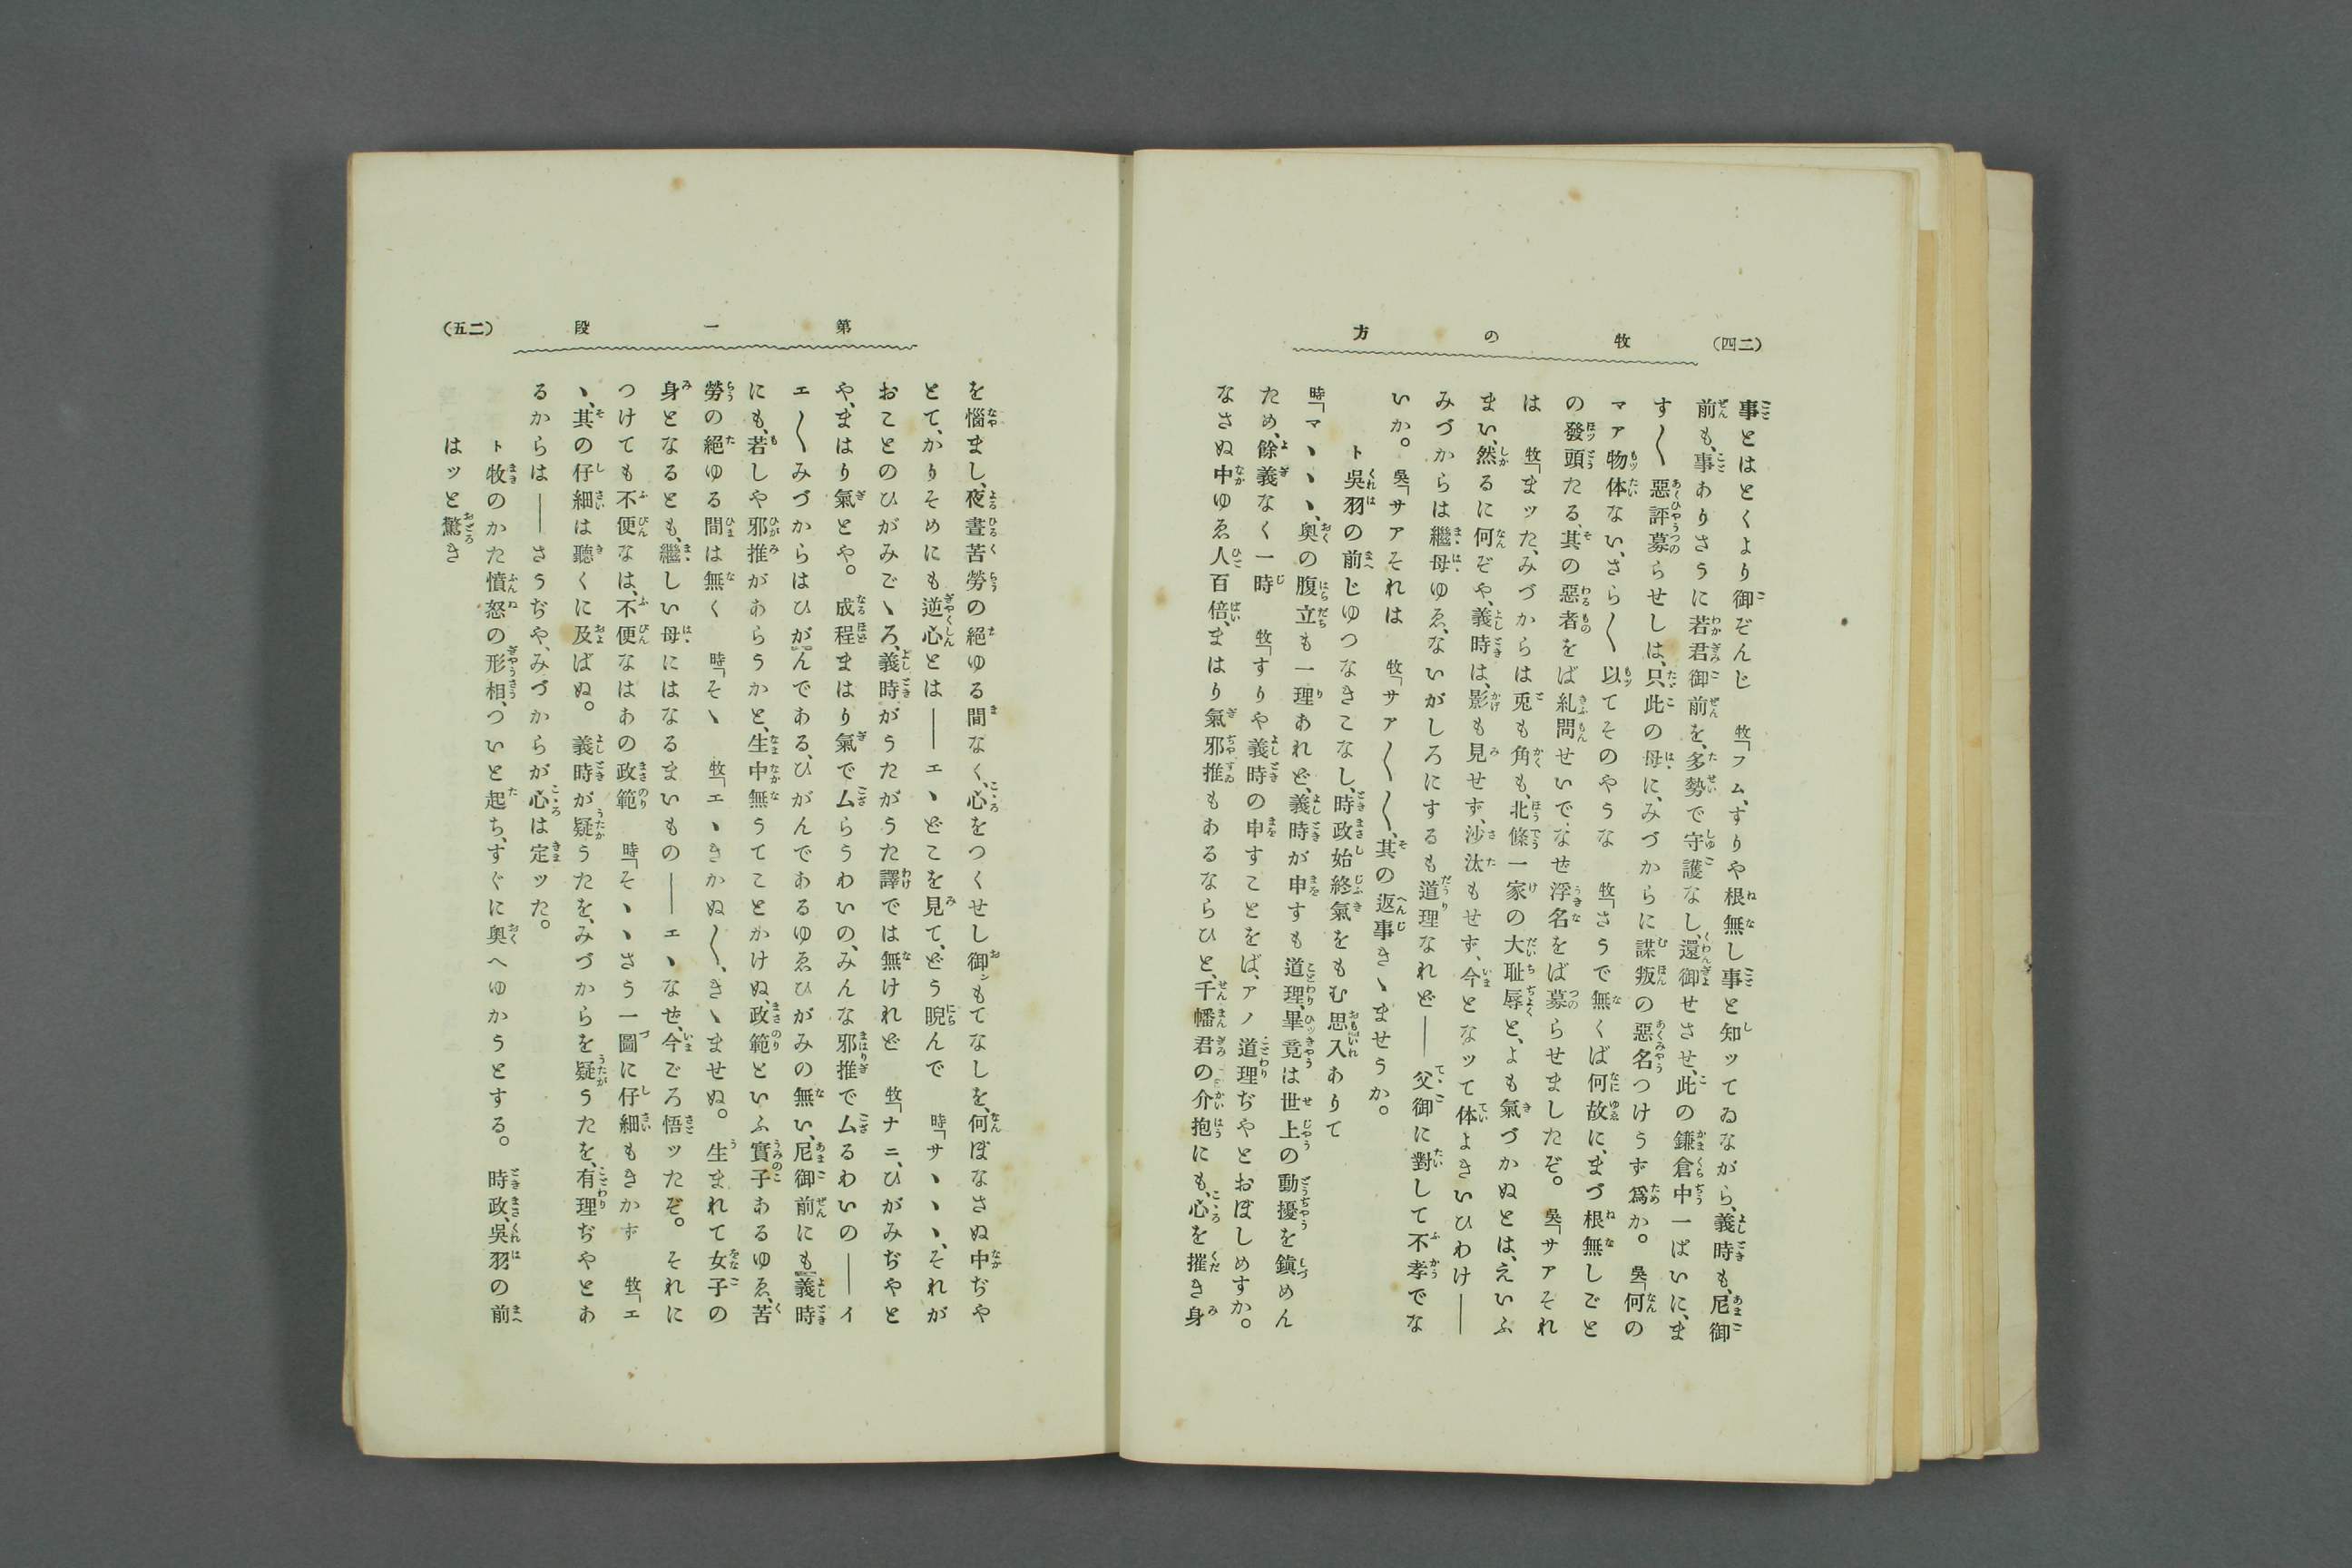 (二四)
牧の方
事とはとくより御ぞんじ　牧「フム、すりや根無し事と知ッてゐながら、義時も、尼御
前も、事ありさうに若君御前を、多勢で守護なし、還御せさせ、此の鎌倉中一ぱいに、ま
す〳〵惡評募らせしは、只此の母に、みづからに謀叛の惡名つけうず爲か。　呉「何の
マァ物体ない、さら〳〵以てそのやうな　牧「さうで無くば何故に、まづ根無しごと
の發頭たる、其の惡者をば糺問せいで、なせ浮名をば募らせましたぞ。　呉「サアそれ
は　牧「まッた、みづからは兎も角も、北條一家の大耻辱と、よも氣づかぬとは、えいふ
まい、然るに何ぞや、義時は、影も見せず、沙汰もせず、今となッて体よきいひわけ――
みづからは繼母ゆゑ、ないがしろにするも道理なれど――父御に對して不孝でな
いか。　呉「サアそれは　牧「サア〳〵〳〵、其の返事きゝませうか。
ト呉羽の前じゆつなきこなし、時政始終氣をもむ思入ありて
時「マヽヽヽ、奧の腹立も一理あれど、義時が申すも道理、畢竟は世上の動擾を鎭めん
ため、餘義なく一時　牧「すりや義時の申すことをば、アノ道理ぢやとおぼしめすか。
なさぬ中ゆゑ人百倍、まはり氣邪推もあるならひと、千幡君の介抱にも、心を摧き身
第一段
(二五)
を惱まし、夜晝苦勞の絕ゆる間なく、心をつくせし御もてなしを、何ぼなさぬ中ぢや
とて、かりそめにも逆心とは――エヽどこを見て、どう睨んで　時「サヽヽヽ、それが
おことのひがみごゝろ、義時がうたがうた譯では無けれど　牧「ナニ、ひがみぢやと
や、まはり氣とや。成程まはり氣でムらうわいの、みんな邪推でムるわいの――イ
エ〳〵みづからはひがんである、ひがんであるゆゑひがみの無い、尼御前にも義時
にも、若しや邪推があらうかと、生中無うてことかけぬ、政範といふ實子あるゆゑ、苦
勞の絕ゆる間は無く　時「そヽ　牧「エヽきかぬ〳〵、きゝませぬ。生まれて女子の
身となるとも、繼しい母にはなるまいもの――エヽなせ、今ごろ悟ッたぞ。それに
つけても不便なは、不便なはあの政範　時「そヽヽさう一圖に仔細もきかず　牧「エ
ヽ、其の仔細は聽くに及ばぬ。義時が疑うたを、みづからを疑うたを、有理ぢやとあ
るからは――さうぢや、みづからが心は定ッた。
ト牧のかた憤怒の形相、ついと起ち、すぐに奧へゆかうとする。時政、呉羽の前
はッと驚き